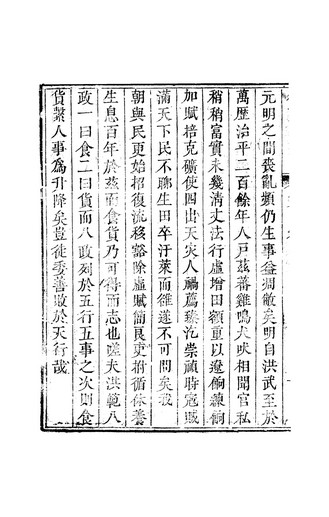 元明之間喪亂頻仍生事益凋敝矣明自洪武至於
萬歷治平二百餘年人戶茲蕃雞鳴犬吠相聞官私
稍稍富實未幾清丈法行虛增田額重以遼餉練餉
加賦掊克礦使四出天灾人禍薦臻沿崇禎時寇賊
滿天下民不聊生田卒汙萊而雒遂不可問矣我
朝與民更始招復流移豁除虛賦簡良吏拊循休養
生息百年於茲而食貨乃可得而志也嗟夫洪範八
政一曰食二曰貨而八政列於五行五事之次則食
貨繫人事為升降矣豈徒委善敗於天行哉